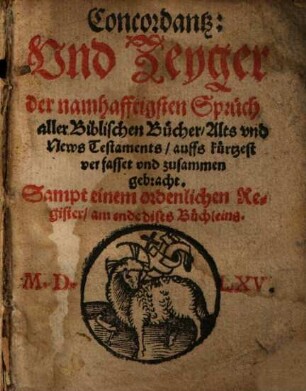 Concordantz:
Vnd Zeyger
der namhafftigsten Sprüch
aller Biblischen Bücher/ Alts vnd
News Testaments/ auffs kürtzest
verfasset vnd zusammen
gebracht.
Sampt einem ordenlichen Re-
gister/ am ende dises Büchleins.
M. D. LXV.